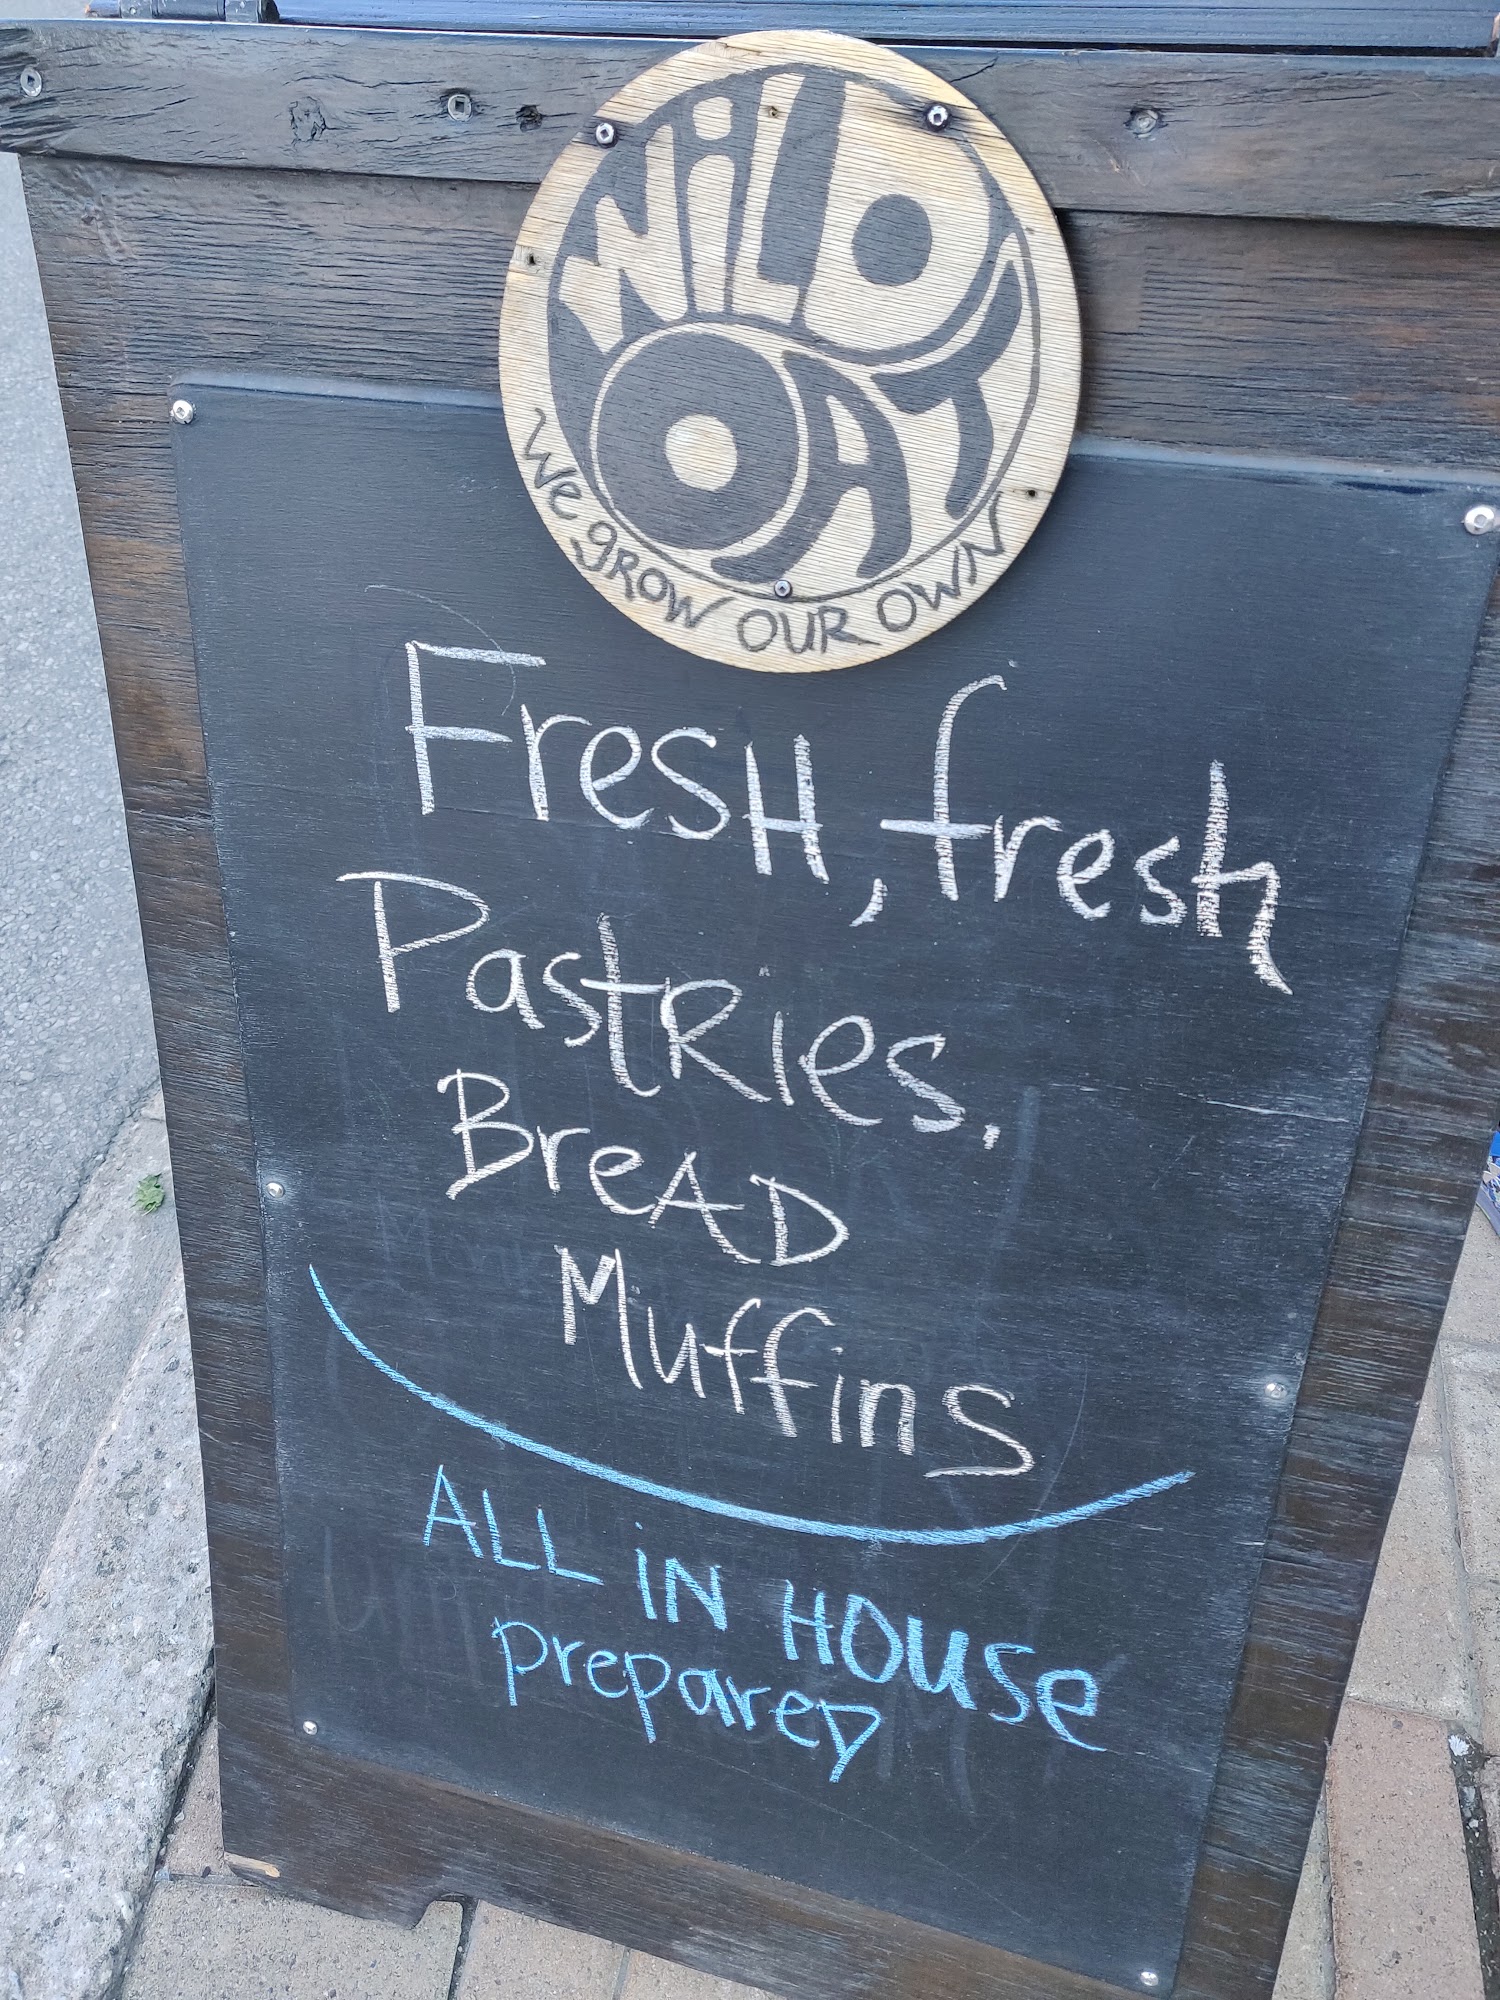 WiLD
OAT
We gROW OUR OWN
FresH, fresh
PastRies,
BreAD
Muffins
ALL iN HOUSe
prepareD